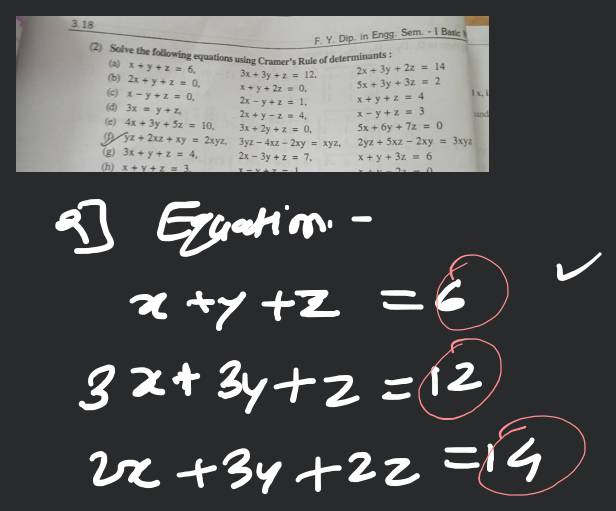 3.18
F. Y. Dip. in Engg. Sem. - I Basic
(2) Solve the following equations using Cramer's Rule of determinants :
(a) x + y + z = 6, 3x + 3y + z = 12, 2x + 3y + 2z = 14
(b) 2x + y + z = 0, x + y + 2z = 0, 5x + 3y + 3z = 2
(c) x - y + z = 0, 2x - y + z = 1, x + y + z = 4
(d) 3x = y + z, 2x + y - z = 4, x - y + z = 3
(e) 4x + 3y + 5z = 10, 3x + 2y + z = 0, 5x + 6y + 7z = 0
(f) yz + 2xz + xy = 2xyz, 3yz - 4xz - 2xy = xyz, 2yz + 5xz - 2xy = 3xyz
(g) 3x + y + z = 4, 2x - 3y + z = 7, x + y + 3z = 6
(h) x + y + z = 3,
a] Equation. -
x + y + z = 6
3x + 3y + z = 12
2x + 3y + 2z = 14